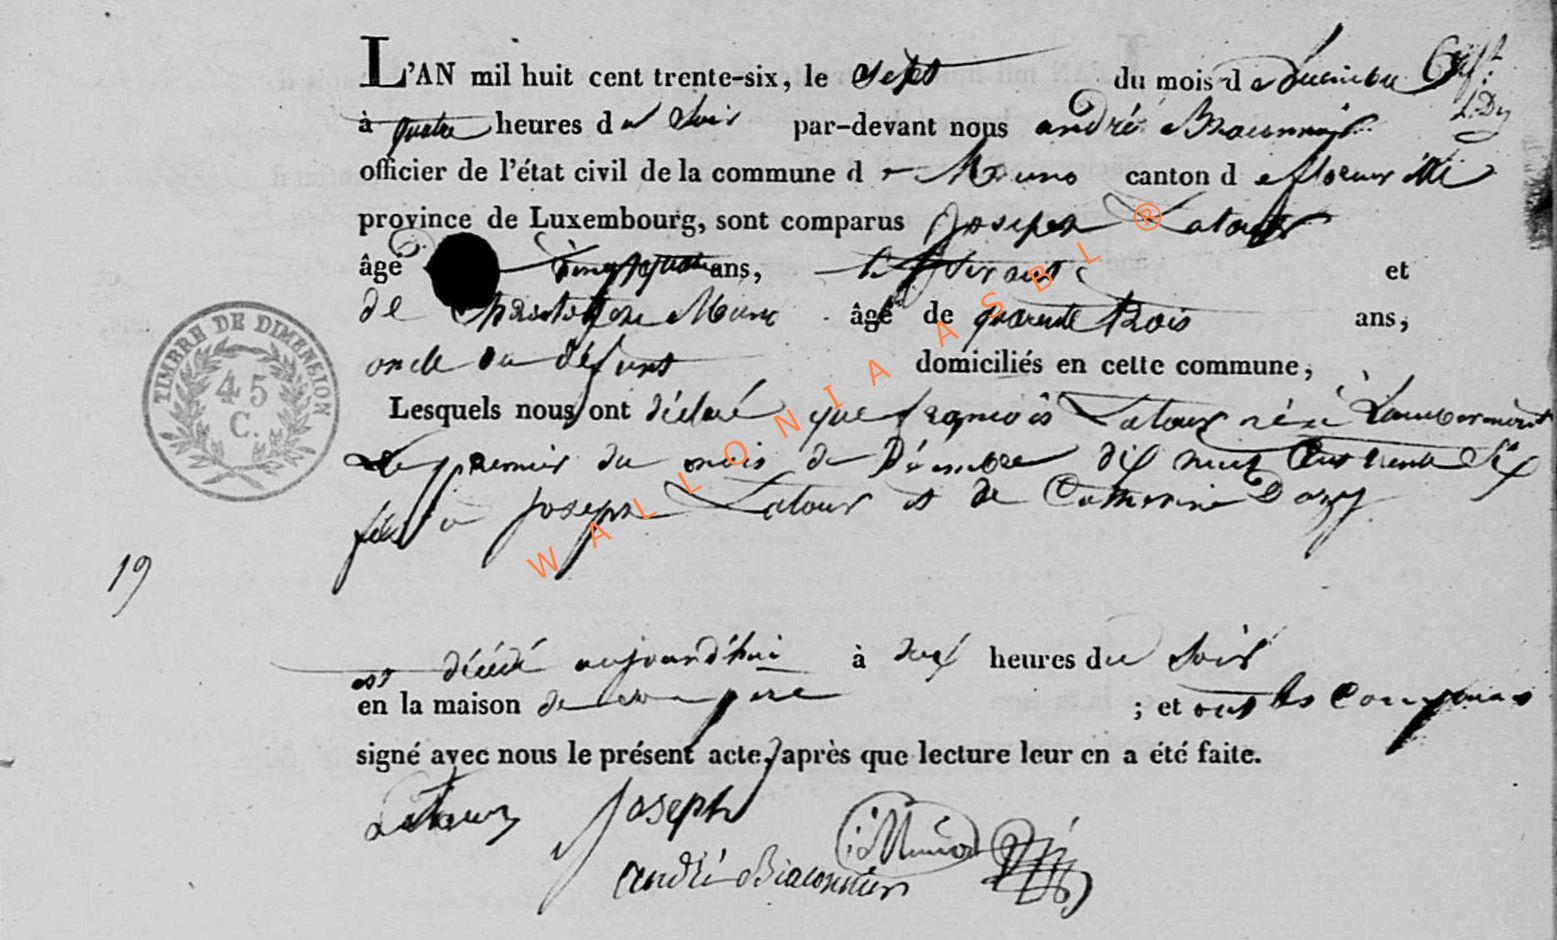 L'AN mil huit cent trente-six, le sept du mois de Décembre
à quatre heures du Soir par-devant nous andré Braconnier
officier de l'état civil de la commune de Muno canton de florenville
province de Luxembourg, sont comparus Joseph Latour
âgé vingt quatre ans, et
de Christophe âgé de quarente trois ans,
oncle du défunt domiciliés en cette commune,
Lesquels nous ont déclaré que françois Latour né à Lambermont
Le premier du mois de Décembre dix huit Cent trente Six
fils à Joseph Latour et de Catherine Dazy
est décédé aujourd'hui à deux heures du Soir
en la maison de son père ; et ont les Comparants
signé avec nous le présent acte, après que lecture leur en a été faite.
Latour Joseph
andré Braconnier
TIMBRE DE DIMENSION
45
C.
19
WALLONIA ASBL ®